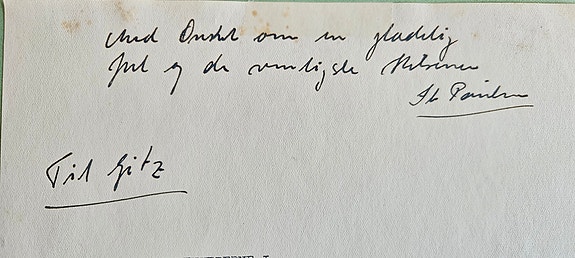 med Ønsket om en glædelig
Jul og de venligste Hilsener
Ib Paulsen
Til Gitz